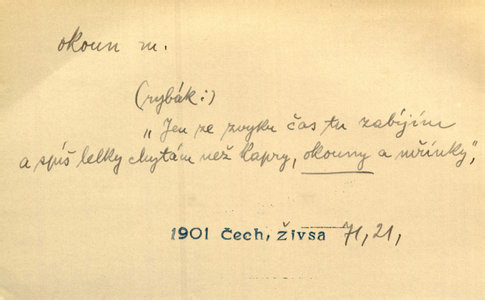 okoun m.
(rybák:)
„Jen ze zvyku čas tu zabíjím
a spíš lelky chytám než kapry, okouny a mřínky",
1901 čech, živsa 71, 21,